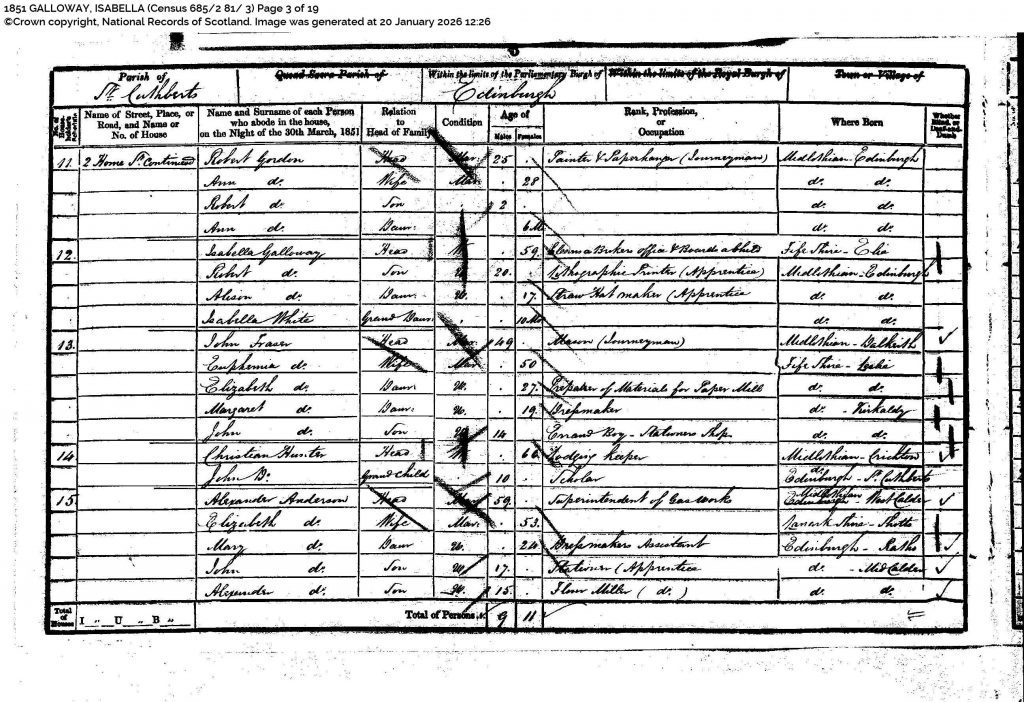 1851 GALLOWAY, ISABELLA (Census 685/2 81/ 3) Page 3 of 19
©Crown copyright, National Records of Scotland. Image was generated at 20 January 2026 12:26
Parish of Quoad Sacra Parish of Within the limits of the Parliamentary Burgh of Within the limits of the Royal Burgh of Town or Village of
St. Cuthberts Edinburgh
Name of Street, Place, or Road, and Name or No. of House Name and Surname of each Person who abode in the house, on the Night of the 30th March, 1851 Relation to Head of Family Condition Age of Males Females Rank, Profession, or Occupation Where Born Whether Blind, or Deaf-and-Dumb
11 2 Home St. Continued Robert Gordon Head Mar. 25 Painter & Paperhanger (Journeyman) Midlothian - Edinburgh
Ann do. Wife Mar. 28 do. do.
Robert do. Son 2 do. do.
Ann do. Daur. 6 Mo do. do.
12 Isabella Galloway Head W. 59 office & Fife Shire - Elie
Robert do. Son U. 20 Lithographic Printer (Apprentice) Midlothian - Edinburgh
Alison do. Daur. U. 17 Straw Hat maker (Apprentice do. do.
Isabella White Grand Daur. 10 Mo do. do.
13 John Fraser Head Mar. 49 Mason (Journeyman) Midlothian - Dalkeith
Euphemia do. Wife Mar. 50 Fife Shire - Leslie
Elizabeth do. Daur. U. 27 Preparer of Materials for Paper Mill do. do.
Margaret do. Daur. U. 19 Dressmaker do. - Kirkaldy
John do. Son 14 Errand Boy - Stationers Shop do. do.
14 Christian Hunter Head W. 66 Lodging Keeper Midlothian - Crichton
John Do. Grand Child 10 Scholar Edinburgh do. St. Cuthberts
15 Alexander Anderson Head Mar. 59 Superintendent of Gas Work Edinburgh Midlothian - West Calder
Elizabeth do. Wife Mar. 53 Lanark Shire - Shotts
Mary do. Daur U. 24 Dressmakers Assistant Edinburgh - Ratho
John do. Son U. 17 Stationer (Apprentice do. - Mid Calder
Alexander do. Son U. 15 Flour Miller (do.) do. do.
Total of Houses I " U " B " Total of Persons 9 11